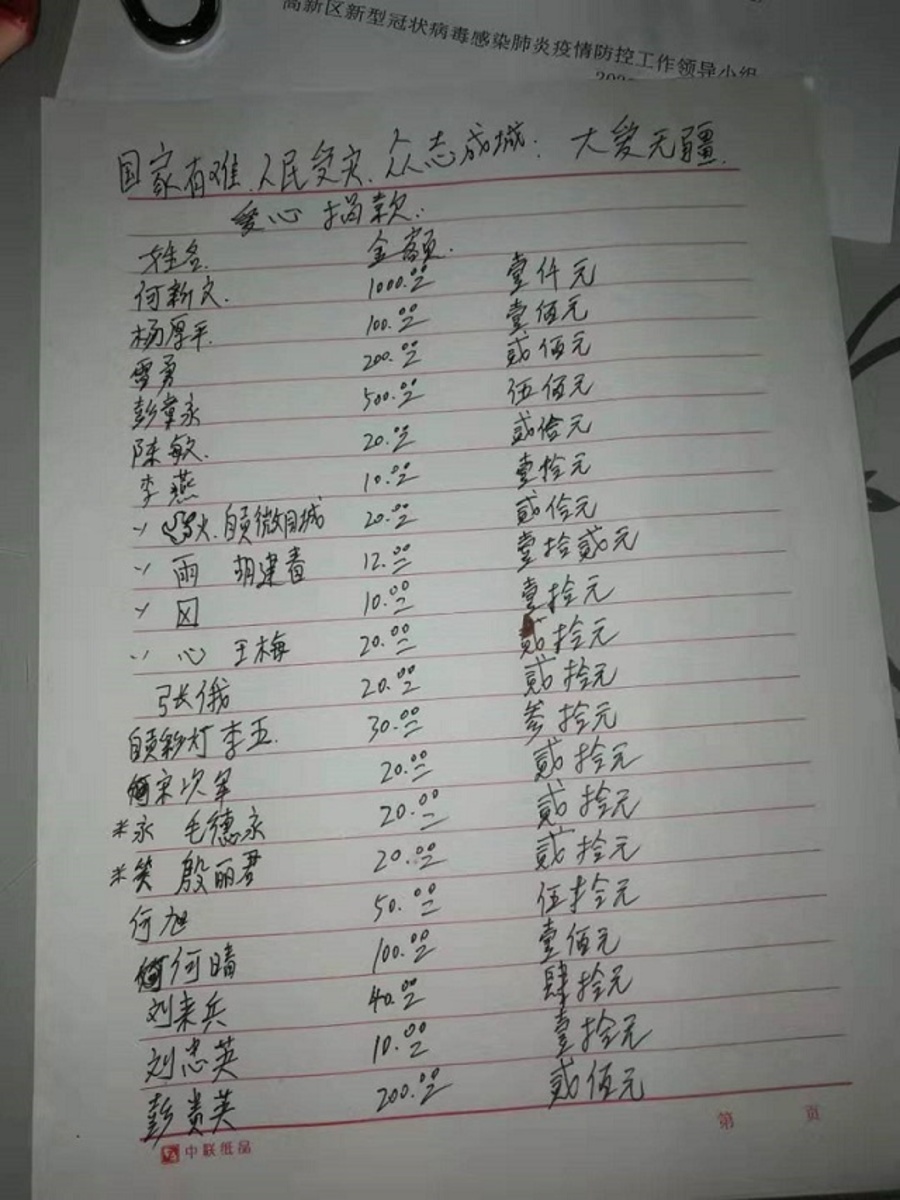 高新区新型冠状病毒感染肺炎疫情防控工作领导小组
国家有难.人民受灾.众志成城. 大爱无疆.
爱心 捐款.
姓名. 金额.
何新文. 1000.00 壹仟元
杨厚平. 100.00 壹佰元
雷勇 200.00 贰佰元
彭章永 500.00 伍佰元
陈敏. 20.00 贰拾元
李燕 10.00 壹拾元
火.自贡微同城 20.00 贰拾元
雨 胡建春 12.00 壹拾贰元
10.00 壹拾元
心 王梅 20.00 贰拾元
张俄 20.00 贰拾元
自贡彩灯李五. 30.00 叁拾元
宋次军 20.00 贰拾元
*永 毛德永 20.00 贰拾元
*笑 殷丽君 20.00 贰拾元
何旭 50.00 伍拾元
何晴 100.00 壹佰元
刘来兵 40.00 肆拾元
刘忠英 10.00 壹拾元
彭贵英 200.00 贰佰元
中联纸品 第 页